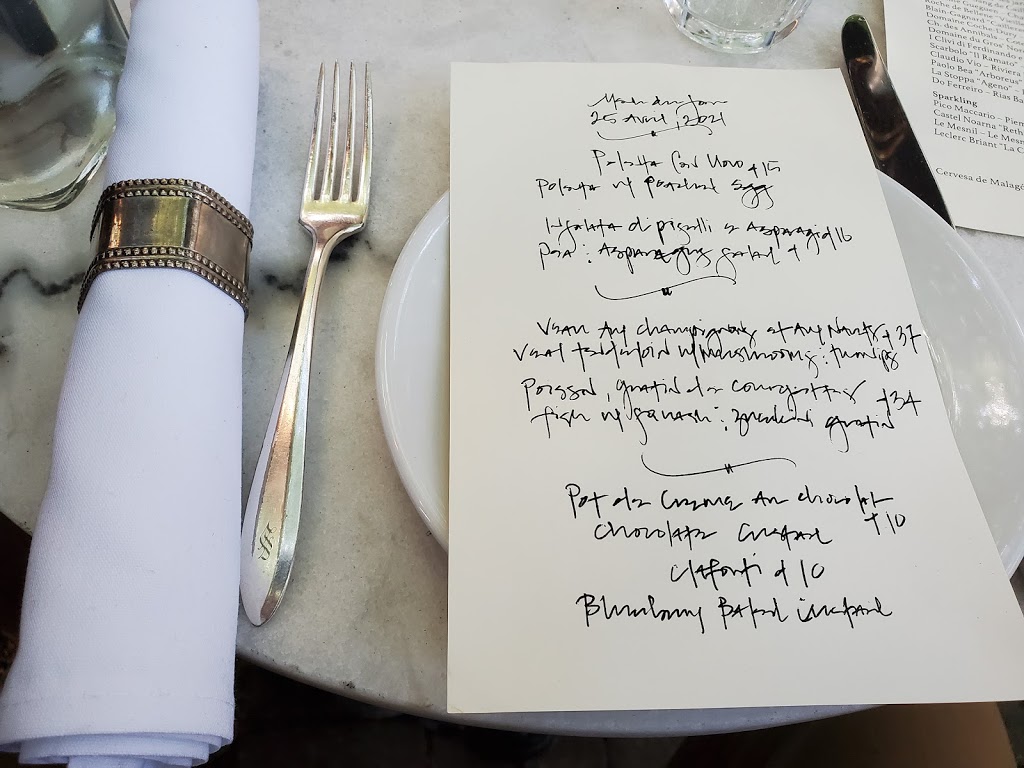 25 Avril, 2021
Polenta Con Uovo +15
Polenta w/ Poached Egg
Insalata di piselli e Asparagi +16
Pea : Asparagus salad
Veau Aux champignons et Aux Navets +37
Veal tenderloin w/ mushrooms : turnips
Poisson, gratin de Courgettes +34
Fish w/ squash : zucchini gratin
Pot de Creme Au chocolat
Chocolate Custard +10
Clafouti +10
Blueberry Baked Custard
Roche de Bellene
Blain-Gagnard
Domaine
Ch. des Annibals
Domaine du Gros' Nore
I Clivi di Ferdinando e
Scarbolo "Il Ramato"
Claudio Vio - Riviera
Paolo Bea "Arboreus"
La Stoppa "Ageno" -
Do Ferreiro - Rias Ba
Sparkling
Pico Maccario - Piem
Castel Noarna "Reth
Le Mesnil - Le Mesn
Leclerc Briant "La C
Cervesa de Malagó